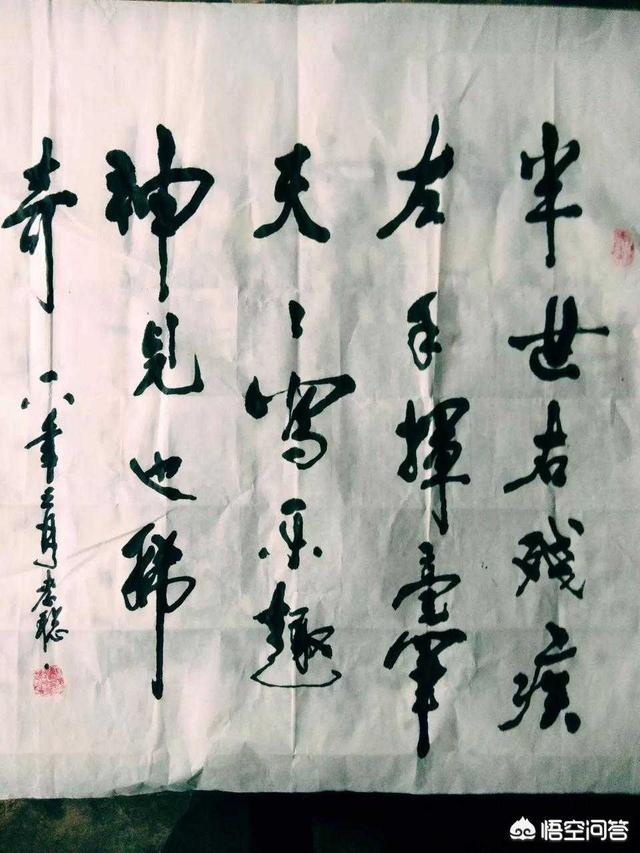 半世右残疾
左手揮毫筆
天天寫乐趣
神見也稀
奇
一八年三月孝聪
悟空问答